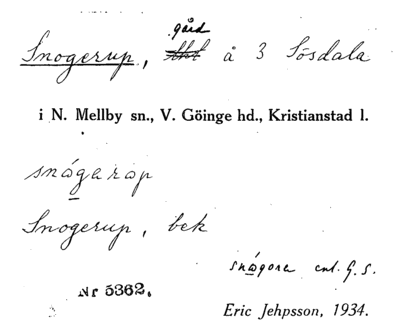 Snogerup, gård å 3 Sösdala
i N. Mellby sn., V. Göinge hd., Kristianstad l.
snågarop
Snogerup, bek
snågora enl. G. S.
Nr 5362.
Eric Jehpsson, 1934.